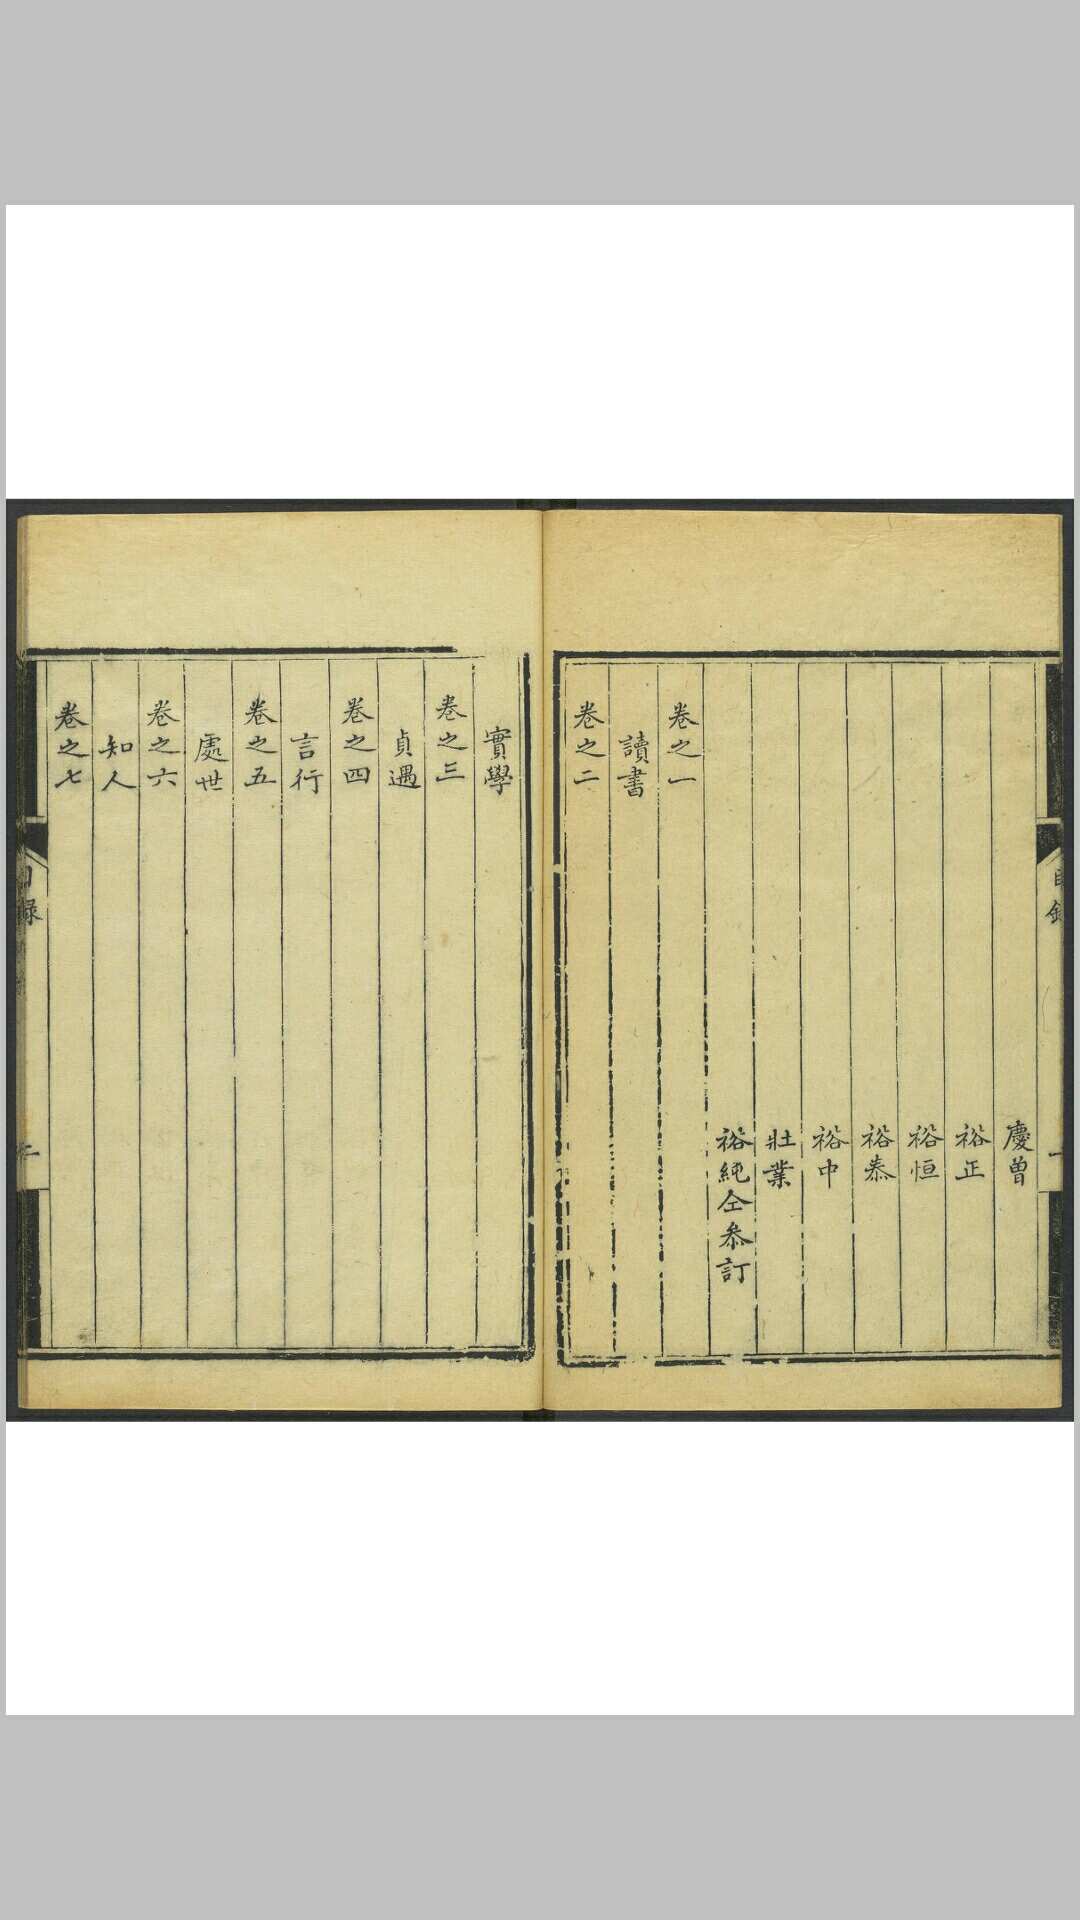 慶曾
裕正
裕恒
裕泰
裕中
壯業
裕純仝叅訂
卷之一
讀書
卷之二
實學
卷之三
貞遇
卷之四
言行
卷之五
處世
卷之六
知人
卷之七
目録